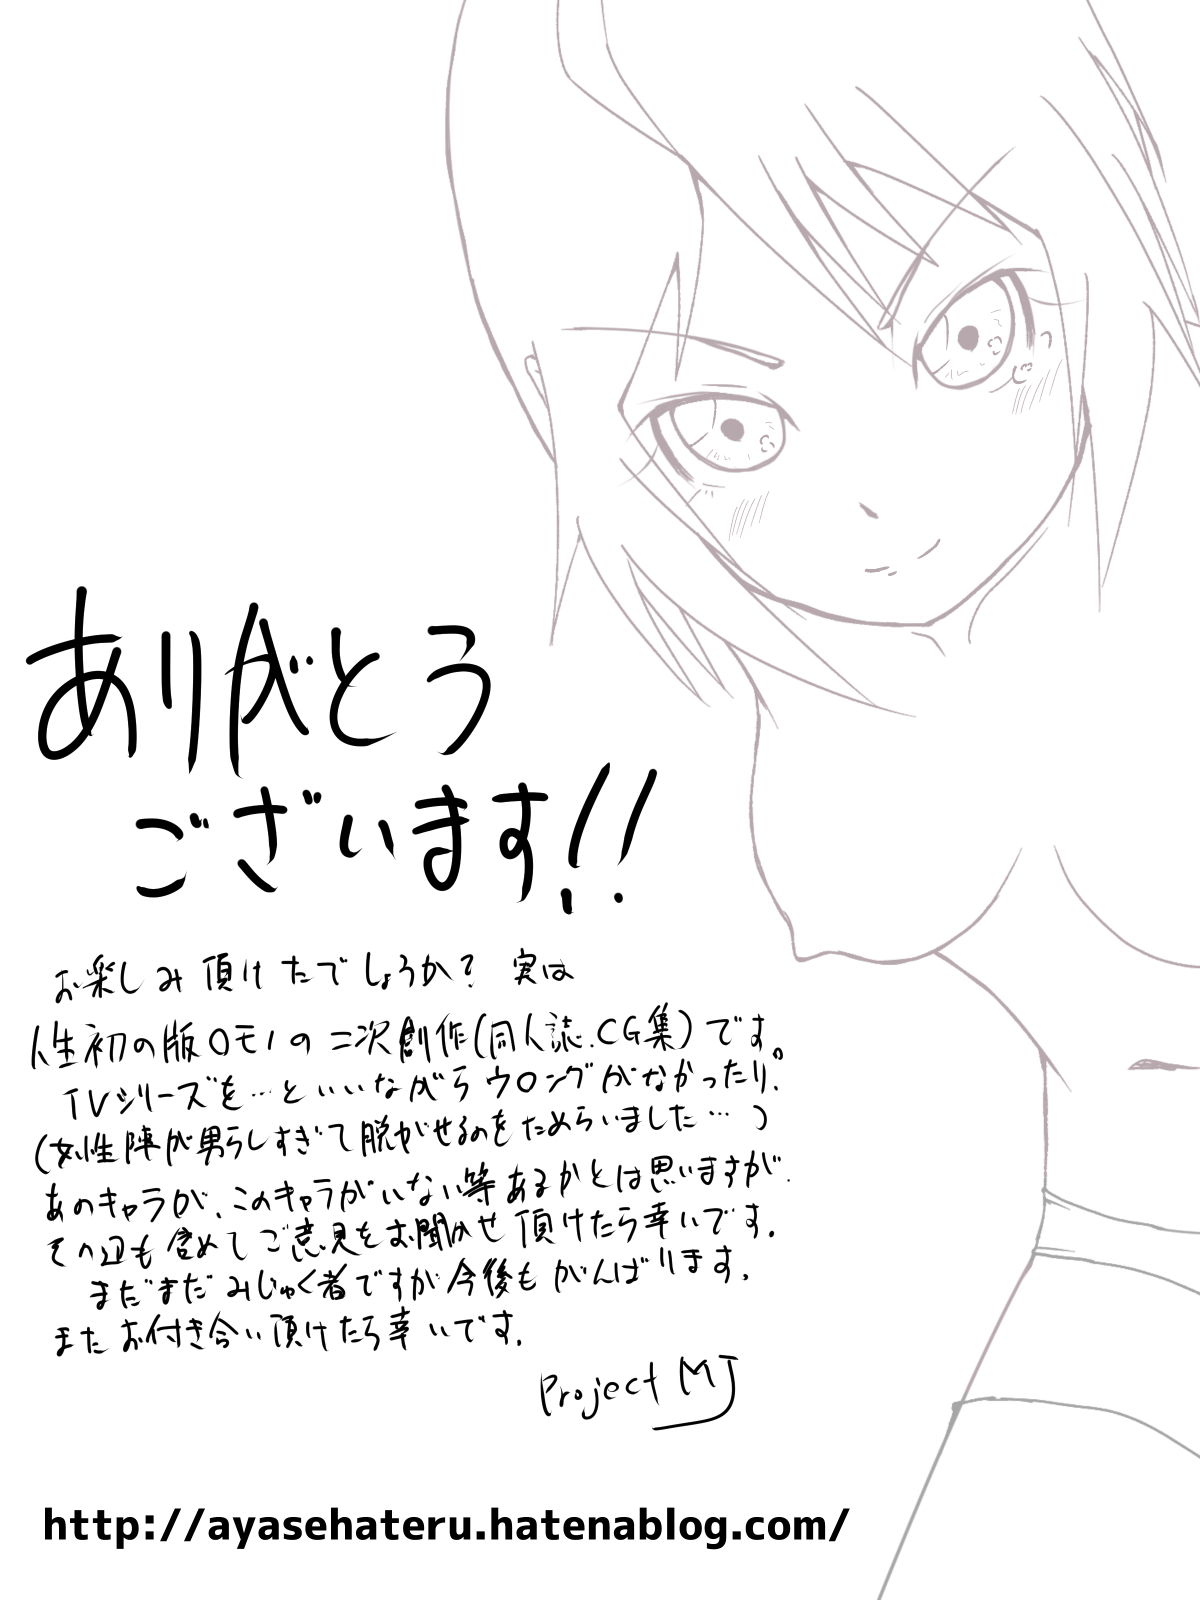 ありがとう
ございます!!
お楽しみ頂けたでしょうか? 実は
人生初の版ロモノの二次創作(同人誌.CG集)です。
TVシリーズを…といいながらウロングがなかったり、
(女性陣が男らしすぎて脱がせるのをためらいました…)
あのキャラが、このキャラがいない等あるかとは思いますが、
その辺も含めてご意見をお聞かせ頂けたら幸いです。
まだまだみじゅく者ですが今後もがんばります。
またお付き合い頂けたら幸いです。
Project MJ
http://ayasehateru.hatenablog.com/